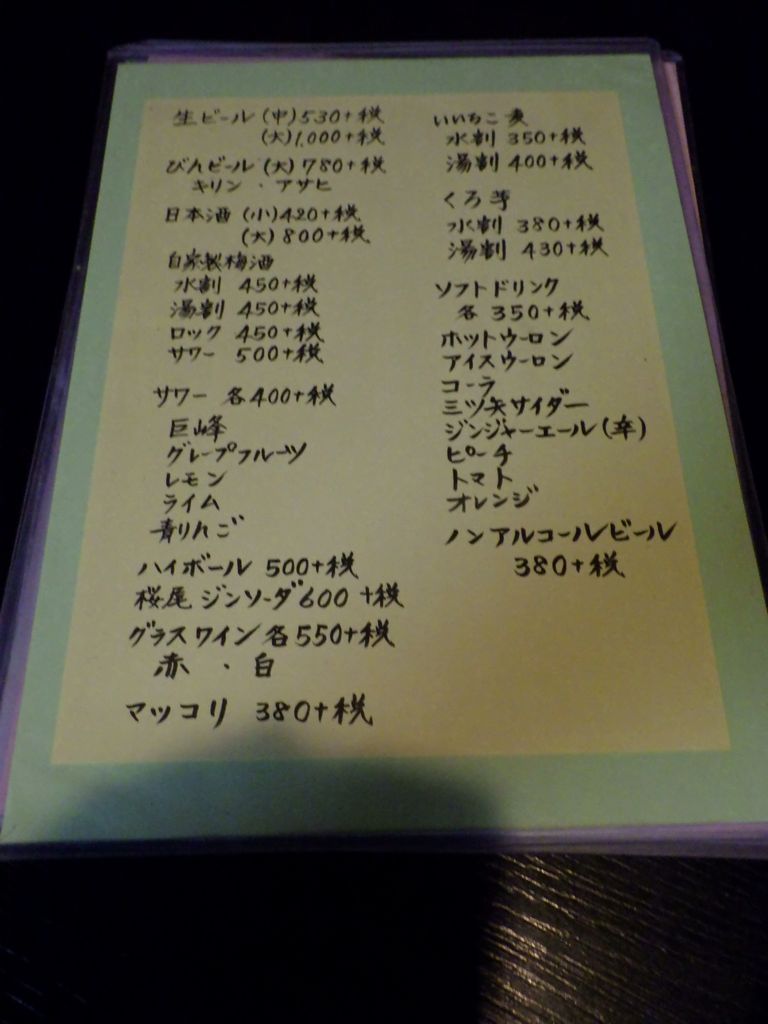 生ビール (中)530+税
(大)1,000+税
びんビール (大)780+税
キリン ・ アサヒ
日本酒 (小)420+税
(大) 800+税
自家製梅酒
水割 450+税
湯割 450+税
ロック 450+税
サワー 500+税
サワー 各400+税
巨峰
グレープフルーツ
レモン
ライム
青りんご
ハイボール 500+税
桜尾 ジンソーダ 600 +税
グラスワイン 各550+税
赤 ・ 白
マッコリ 380+税
いいちこ 麦
水割 350+税
湯割 400+税
くろ 芋
水割 380+税
湯割 430+税
ソフトドリンク
各 350+税
ホットウーロン
アイスウーロン
コーラ
三ツ矢サイダー
ジンジャーエール(辛)
ピーチ
トマト
オレンジ
ノンアルコールビール
380+税